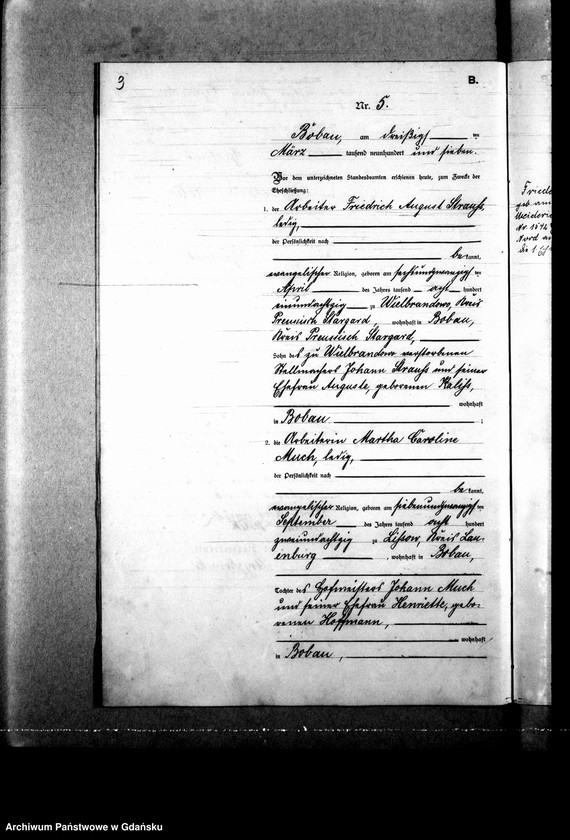 3
B.
Nr. 5.
Bobau, am dreißigsten
März tausend neunhundert und sieben.
Vor dem unterzeichneten Standesbeamten erschienen heute, zum Zwecke der
Eheschließung:
1. der Arbeiter Friedrich August Strauss,
ledig,
der Persönlichkeit nach
bekannt,
evangelischer Religion, geboren am sechsundzwanzigsten
April des Jahres tausend acht hundert
einundachtzig zu Wielbrandowo, Kreis
Preussisch Stargard, wohnhaft in Bobau,
Kreis Preussisch Stargard,
Sohn des zu Wielbrandowo verstorbenen
Stellmachers Johann Strauss und seiner
Ehefrau Auguste, geborenen Kalisse,
wohnhaft
in Bobau ;
2. die Arbeiterin Martha Caroline
Much, ledig,
der Persönlichkeit nach
bekannt,
evangelischer Religion, geboren am siebenundzwanzigsten
September des Jahres tausend acht hundert
zweiundachtzig zu Lissow, Kreis Lau-
enburg, wohnhaft in Bobau,
Tochter des Hofmeisters Johann Much
und seiner Ehefrau Henriette, gebo-
renen Hoffmann,
wohnhaft
in Bobau,
Friede
geb am
Nr. 154
Nord
Archiwum Państwowe w Gdańsku